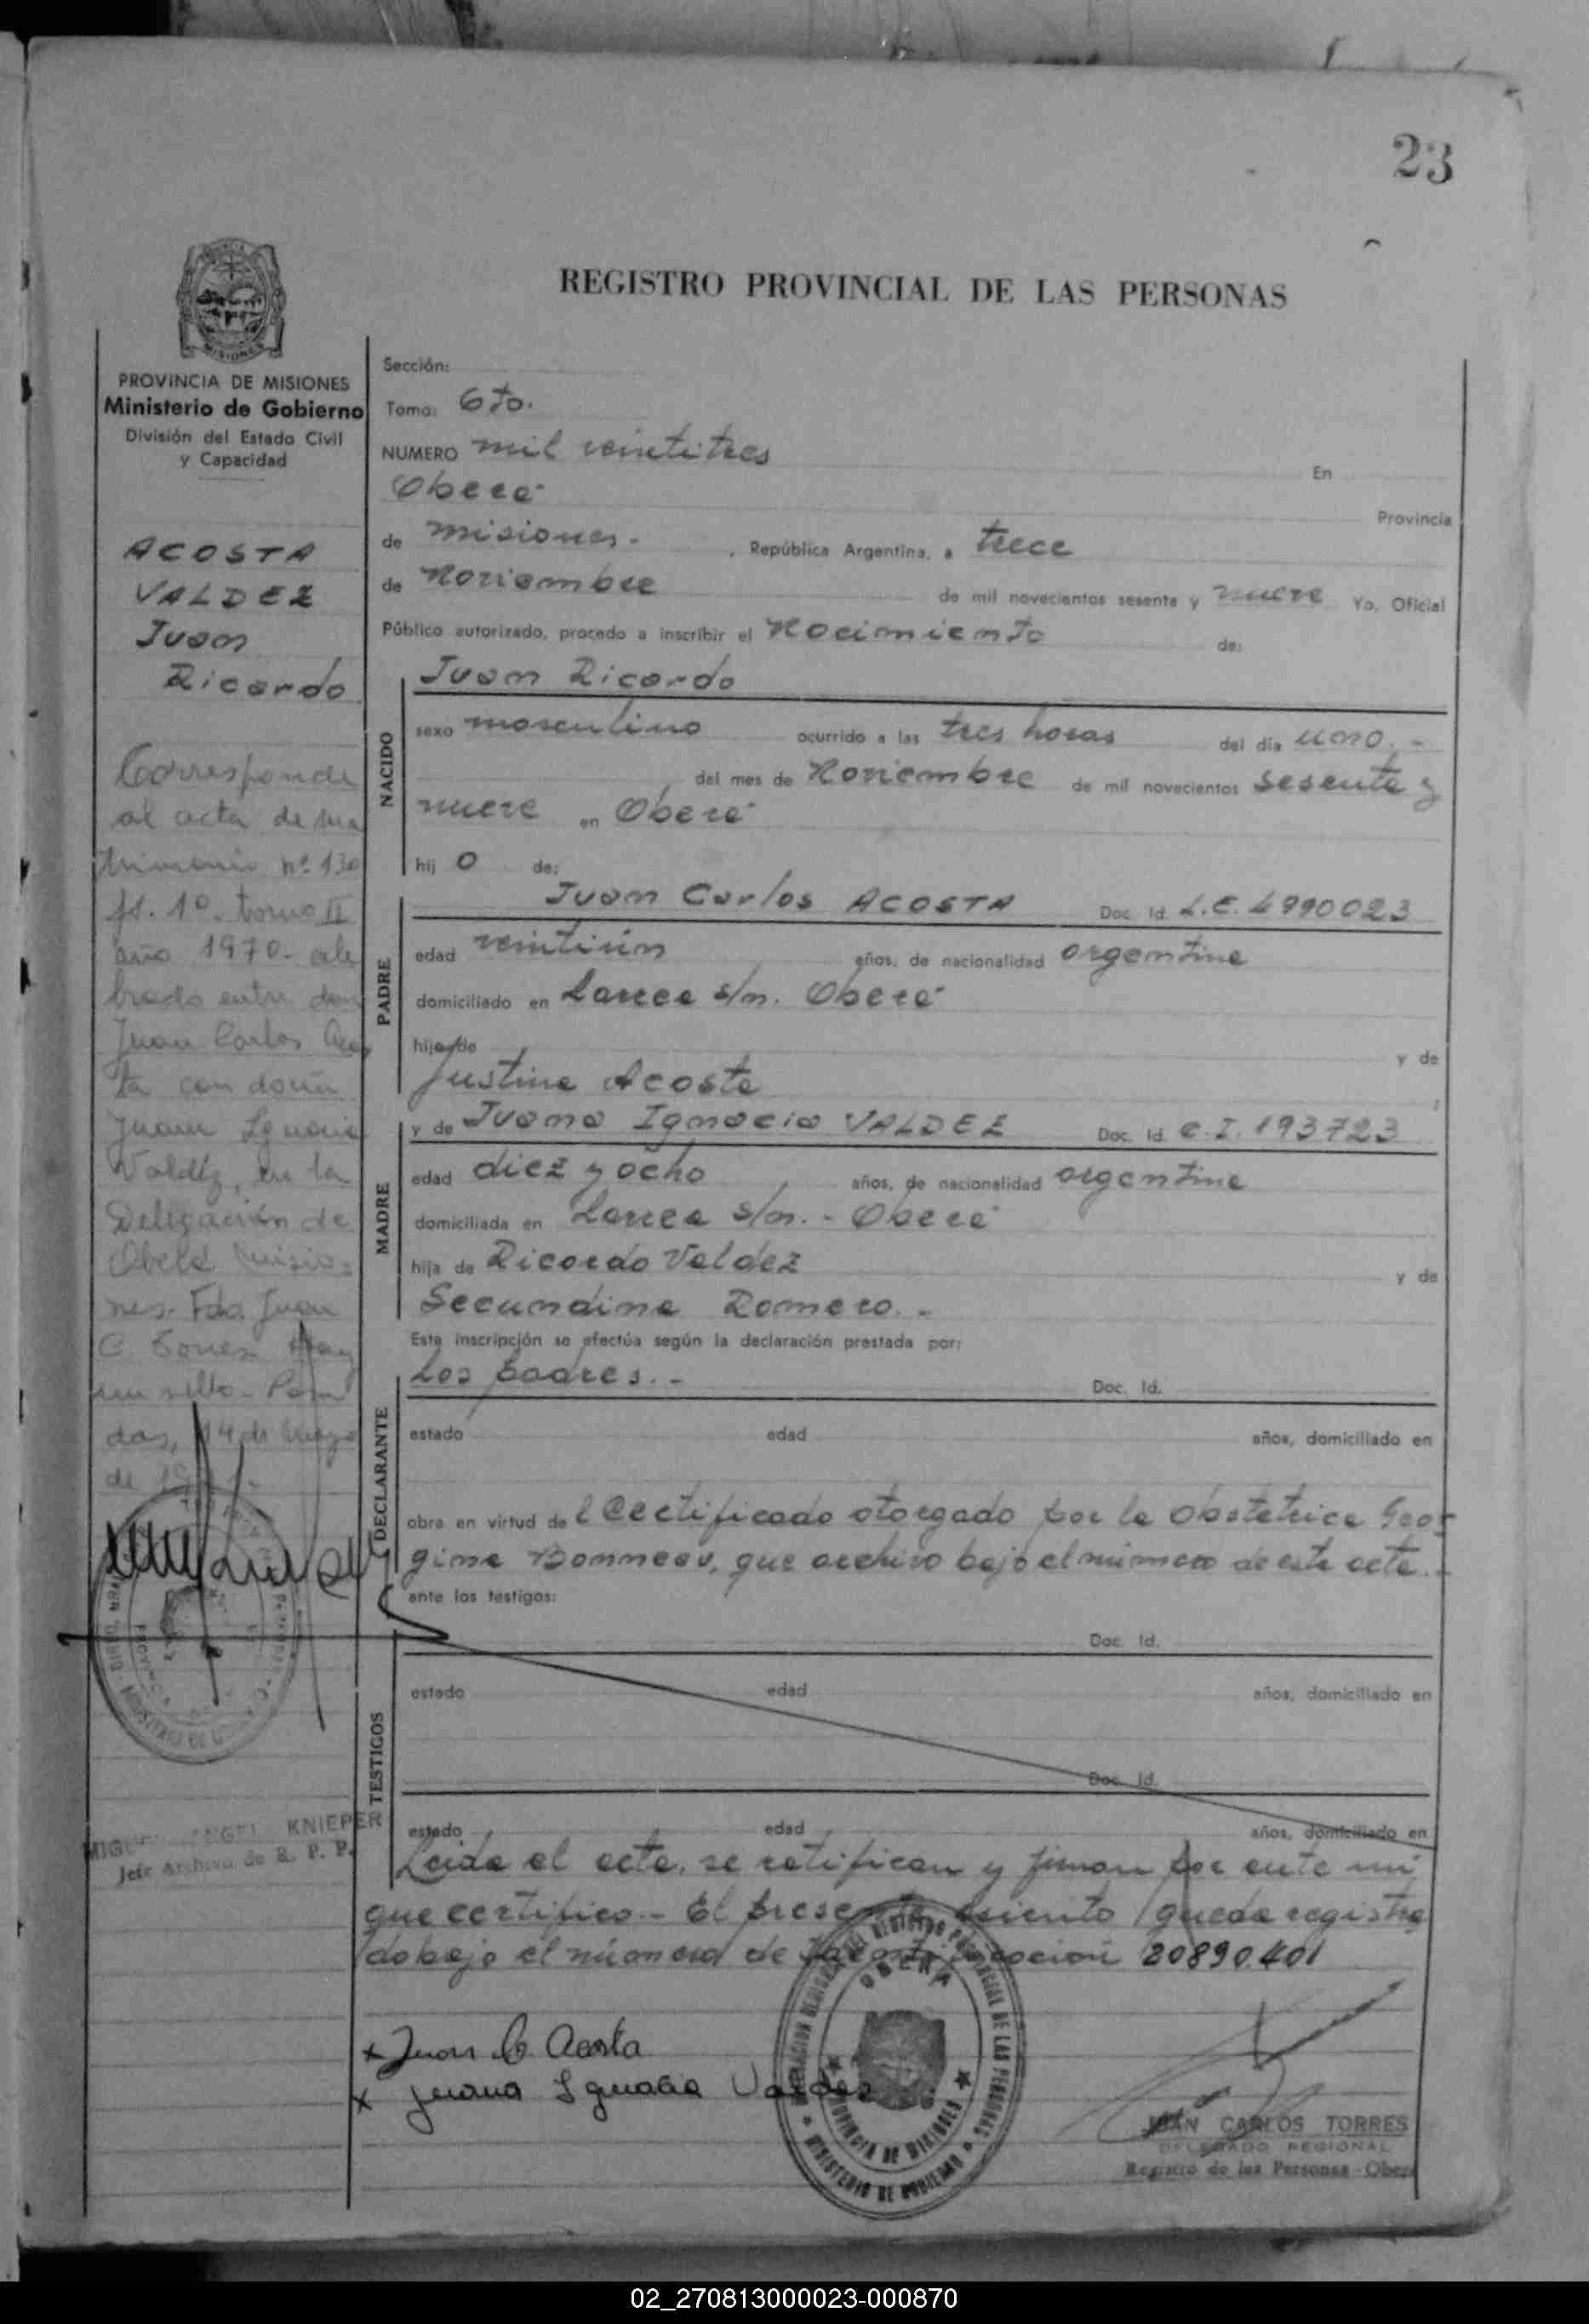 23
REGISTRO PROVINCIAL DE LAS PERSONAS
MISIONES
PROVINCIA DE MISIONES
Ministerio de Gobierno
División del Estado Civil
y Capacidad
ACOSTA
VALDEZ
Juan
Ricardo
Corresponde
al acta de ma
trimonio nº 130
fs. 1º tomo II
año 1970- cele
brado entre don
Juan Carlos Acos
ta con doña
Juana Ignacia
Valdéz, en la
Delegación de
Oberá Misio-
nes. Fdo. Juan
C Torres Hay
un sello- Posa
das, 14 de Mayo
de
MIGUEL ANGEL KNIEPER
Jefe Archivo de R. P. P.
Sección:
Tomo: 6to.
NUMERO mil veintitres En
Oberá Provincia
de Misiones.- , República Argentina, a trece
de Noviembre de mil novecientos sesenta y nueve Yo, Oficial
Público autorizado, procedo a inscribir el Nacimiento de:
Juan Ricardo
NACIDO
sexo masculino ocurrido a las tres horas del día uno.-
del mes de Noviembre de mil novecientos sesenta y
nueve en Oberá
hij o de:
PADRE
Juan Carlos ACOSTA Doc. Id. L.E. 4990023
edad veintiún años, de nacionalidad argentina
domiciliado en Larrea s/n. Oberá
hijo de y de
Justina Acosta
MADRE
y de Juana Ignacia VALDEZ Doc. Id. C.I. 193723
edad diez y ocho años, de nacionalidad argentina
domiciliada en Larrea s/n.- Oberá
hija de Ricardo Valdez y de
Secundina Romero.-
Esta inscripción se efectúa según la declaración prestada por:
DECLARANTE
Los padres.- Doc. Id.
estado edad años, domiciliado en
obra en virtud de l Certificado otorgado por la Obstetrica Geor
gina Bonneau, que archivo bajo el número de esta acta.-
ante los testigos:
TESTIGOS
Doc. Id.
estado edad años, domiciliado en
Doc. Id.
estado edad años, domiciliado en
Leida el acta, se ratifican y firman por ante mi
que certifico.- El presente asiento queda registra
do bajo el número de 20890.401
x Juan C. Acosta
x Juana Ignacia Valdez
DELEGACION REGIONAL DEL REGISTRO PROVINCIAL DE LAS PERSONAS
OBERA
PROVINCIA DE MISIONES
MINISTERIO DE GOBIERNO
JUAN CARLOS TORRES
DELEGADO REGIONAL
Registro de las Personas - Oberá
02_270813000023-000870